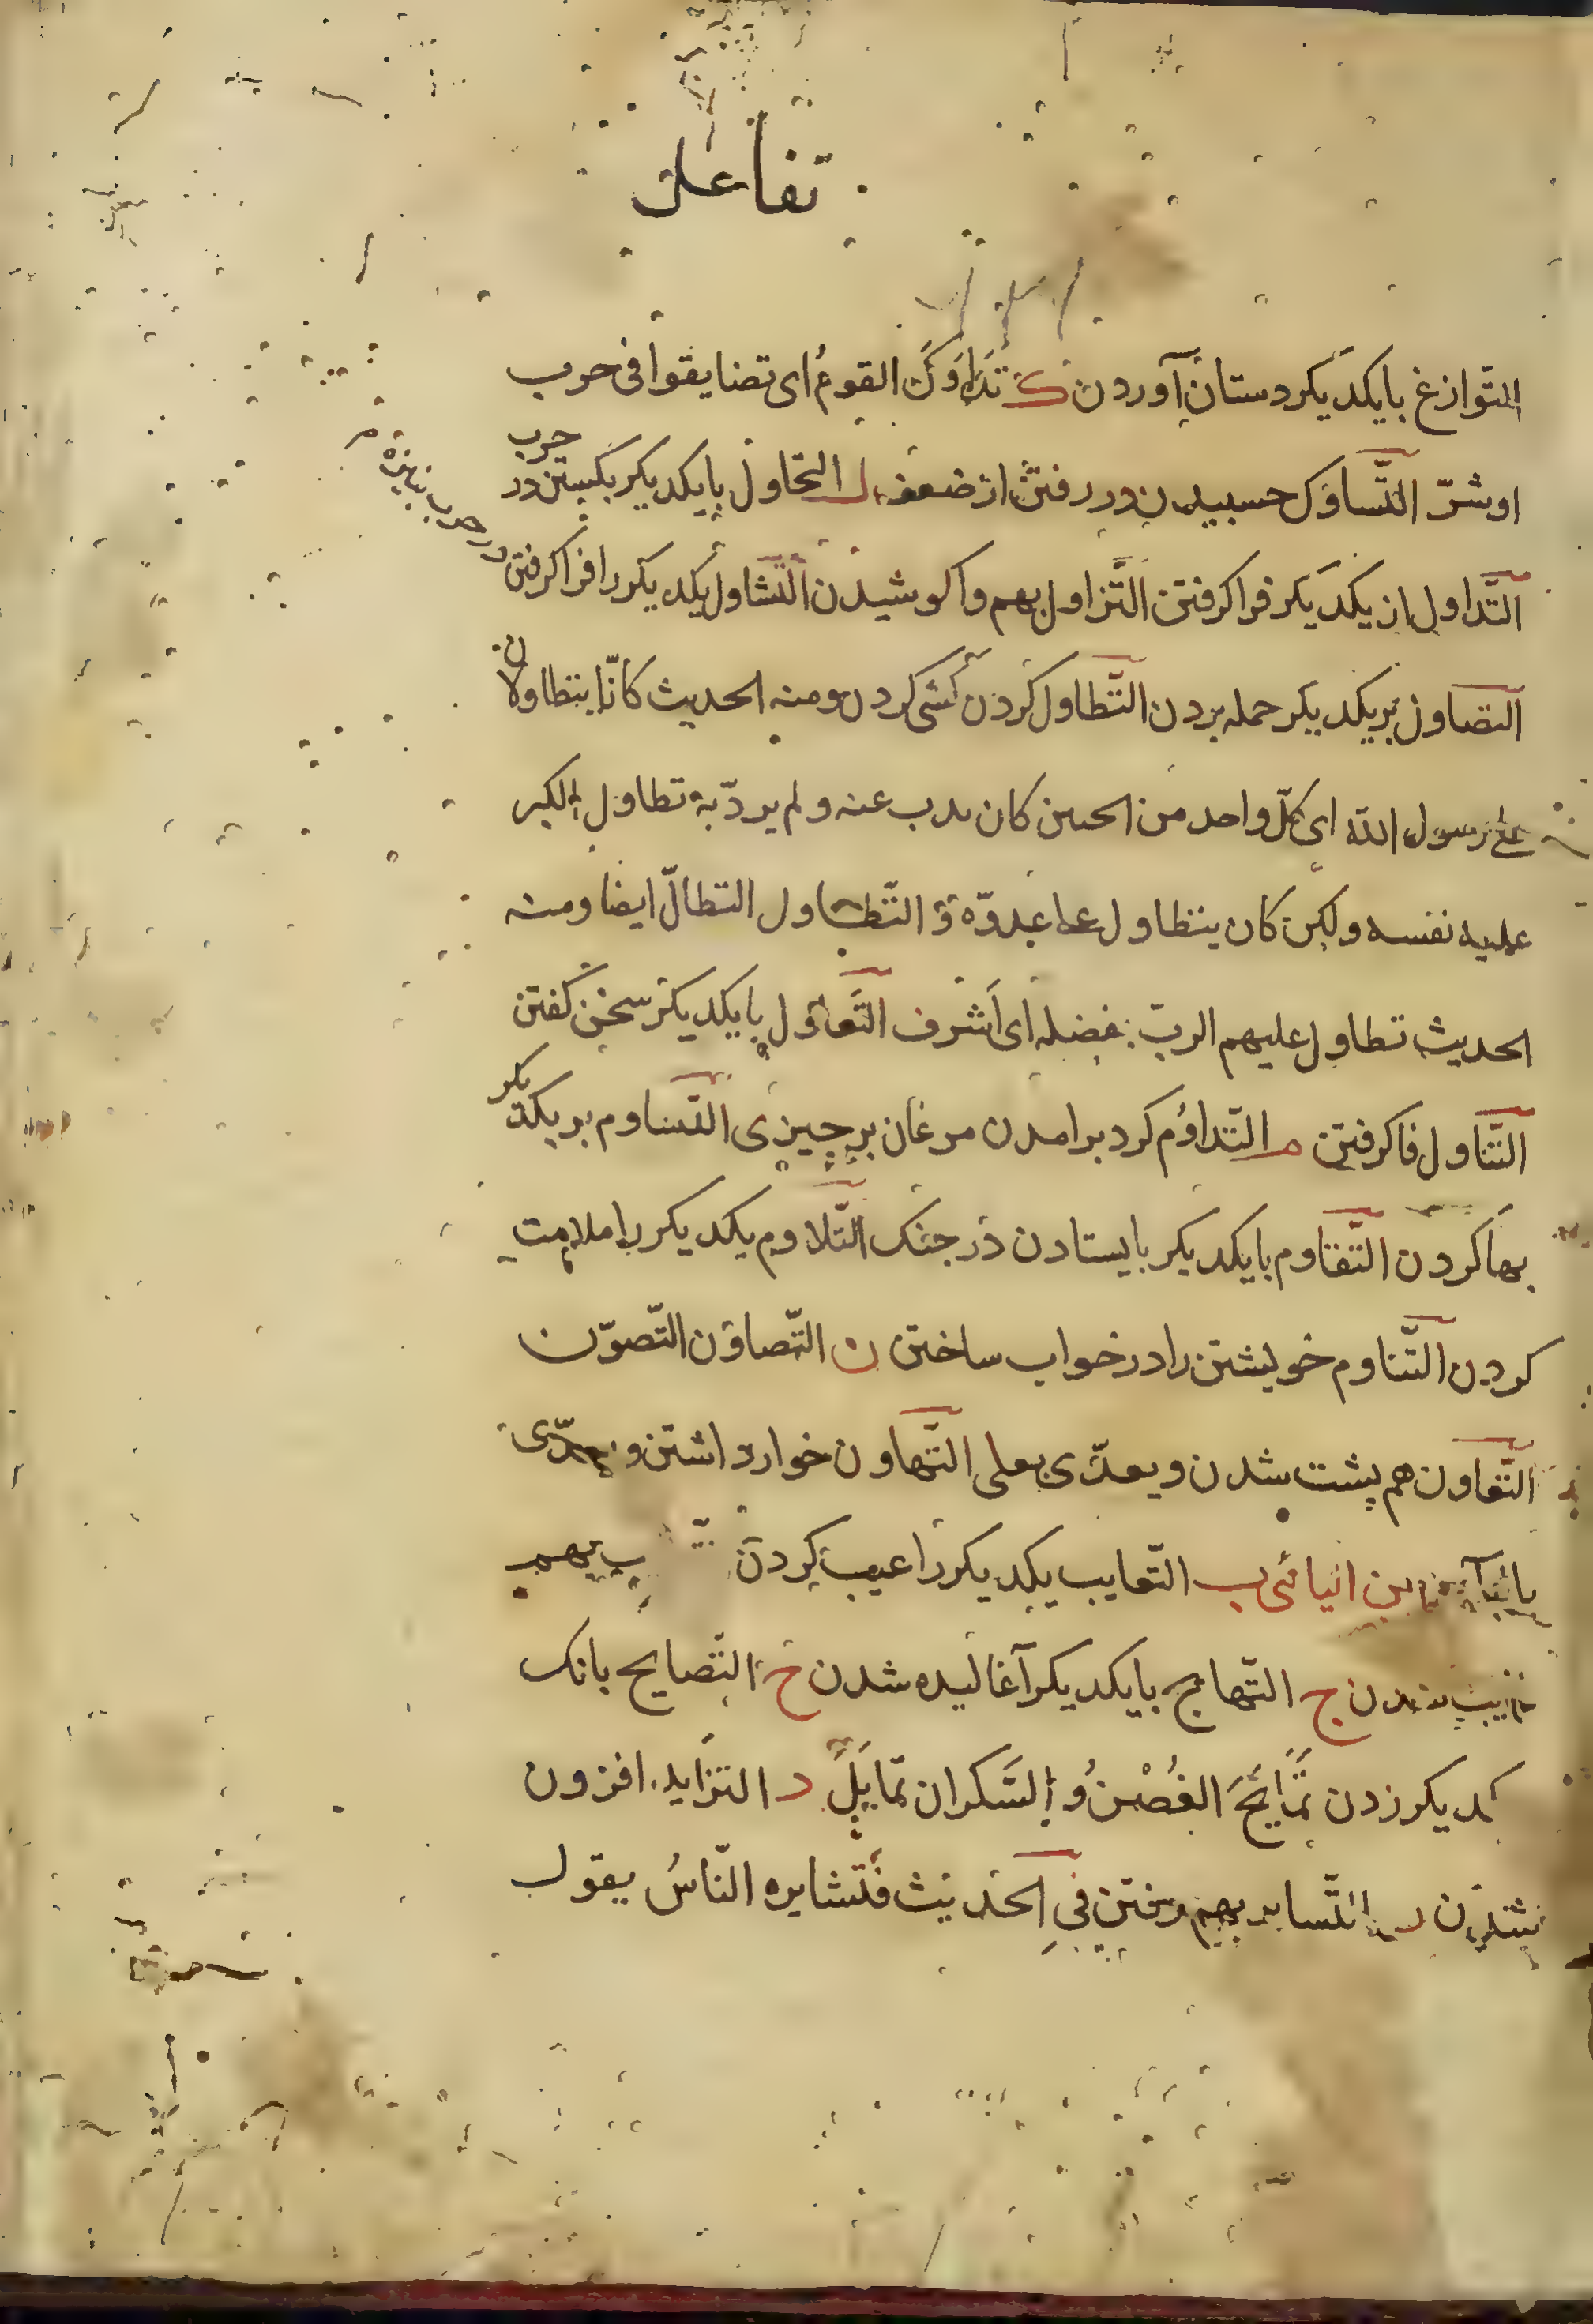 تفاعل
التّوازغ بایکدیکر دستان آوردن ک تَدَاوَکَ القومُ ای تضایقوا فی حرب
اوشرّ التَّساوَک حسبیدن ودر رفتن از ضعف ل التجاول بایکدیکر بکشتن در
حرب
التّداول از یکدیکر فراکرفتن التَّزاول بهم واکوشیدن التّشاول یکدیکر را فراکرفتن
در حرب بنیزه م
التصاول بریکدیکر حمله بردن التَّطاول کردن کشی کردن ومنه الحدیث کانّا یتطاولان
علی رسول الله ای کلّ واحد من الحیین کان یدب عنه ولم یردّ به تطاول الکبر
علیه نفسه ولکن کان یتطاول علی عدوّه ؤ التَّطاول التطالّ ایضا ومنه
الحدیث تطاول علیهم الربّ بفضله ای اَشرف التَّقاوَل بایکدیکر سخن کفتن
التَّناول فاکرفتن م التّداوُم کرد برامدن مرغان بر چیزی التّساوم بر یکدیکر
بها کردن التَّقاوم بایکدیکر بایستادن در جنک التّلاوم یکدیکر را ملامت
کردن التَّناوم خویشتن را در خواب ساختن ن التّصاوُن التّصوّن
التَّعاون هم پشت شدن ویعدّی بعلی التَّهاون خوار داشتن ویعدّی
بالبآء ومن الیائی ب التّعایب یکدیکر را عیب کردن بهم
شدن ج التّهایج بایکدیکر آغالیده شدن ح التّصایح بانک
یکدیکر زدن تَمَایَحَ الغُصْنُ والسَّکران تمایَلَ د التزاید افزون
شدن ر التَّسایر بهم رفتن فی الحدیث فَتَسایره النّاسُ یقول